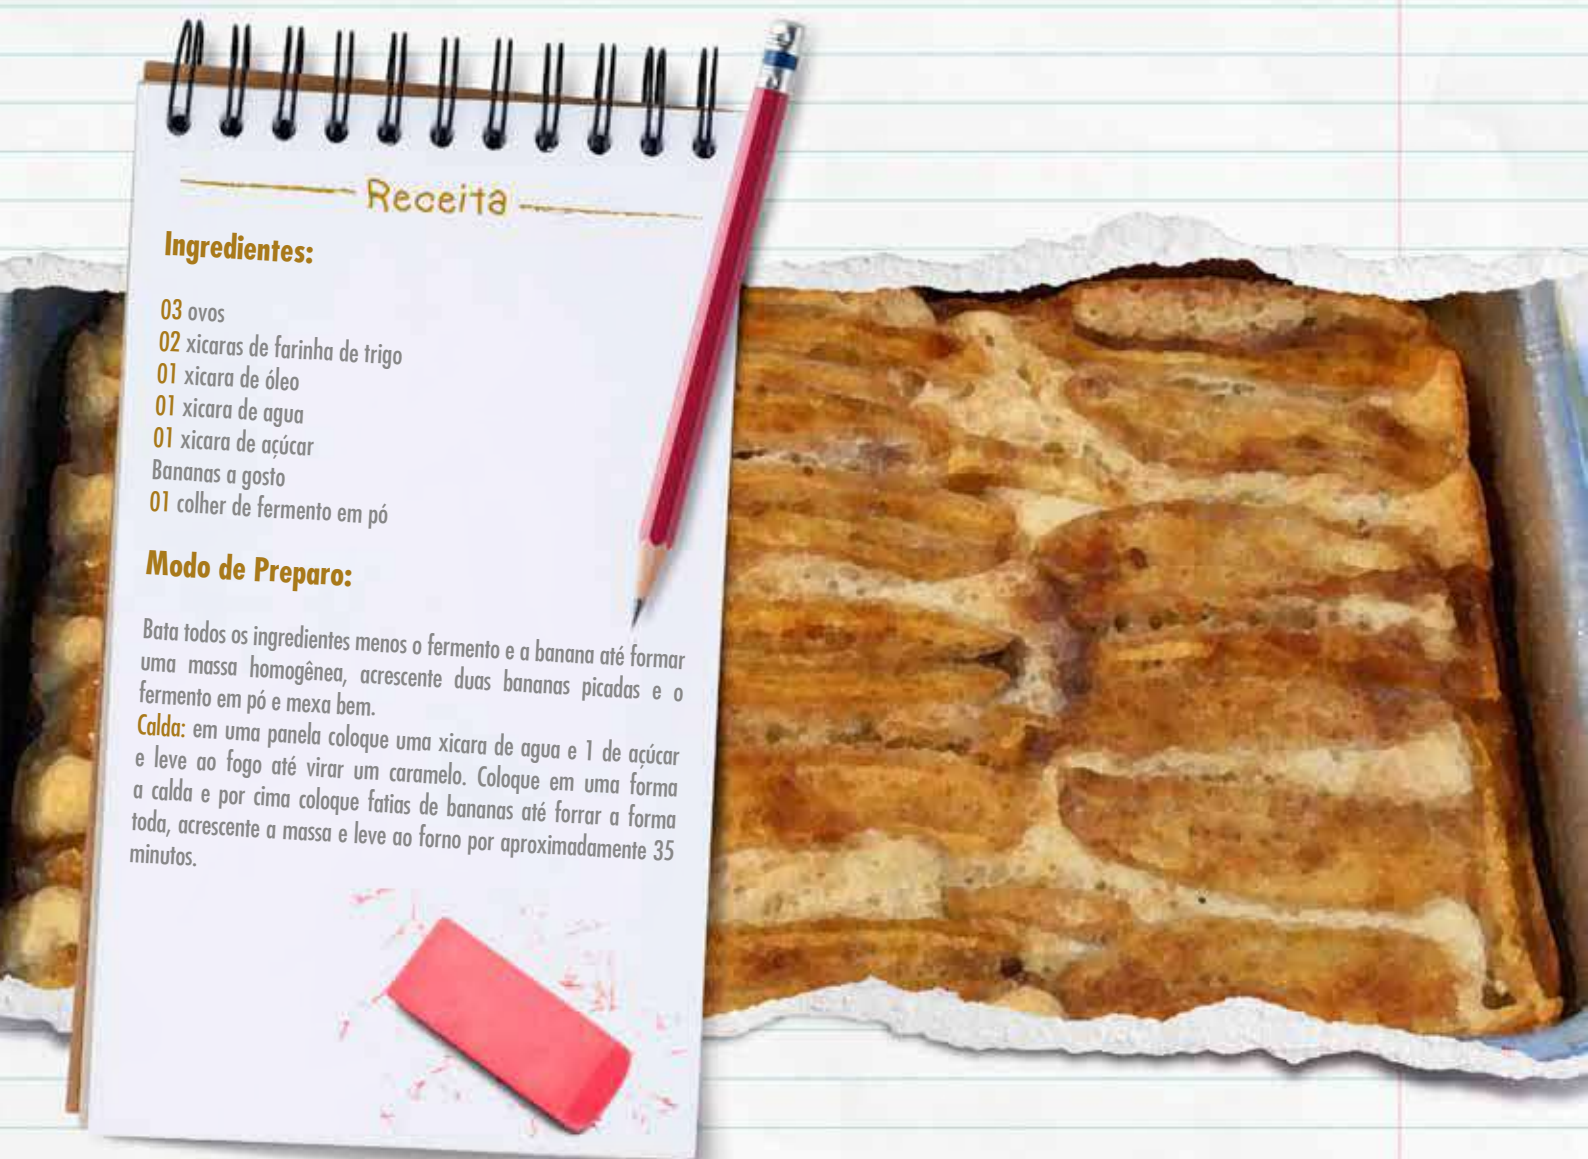 Receita
Ingredientes:
03 ovos
02 xicaras de farinha de trigo
01 xicara de óleo
01 xicara de agua
01 xicara de açúcar
Bananas a gosto
01 colher de fermento em pó
Modo de Preparo:
Bata todos os ingredientes menos o fermento e a banana até formar
uma massa homogênea, acrescente duas bananas picadas e o
fermento em pó e mexa bem.
Calda: em uma panela coloque uma xicara de agua e 1 de açúcar
e leve ao fogo até virar um caramelo. Coloque em uma forma
a calda e por cima coloque fatias de bananas até forrar a forma
toda, acrescente a massa e leve ao forno por aproximadamente 35
minutos.